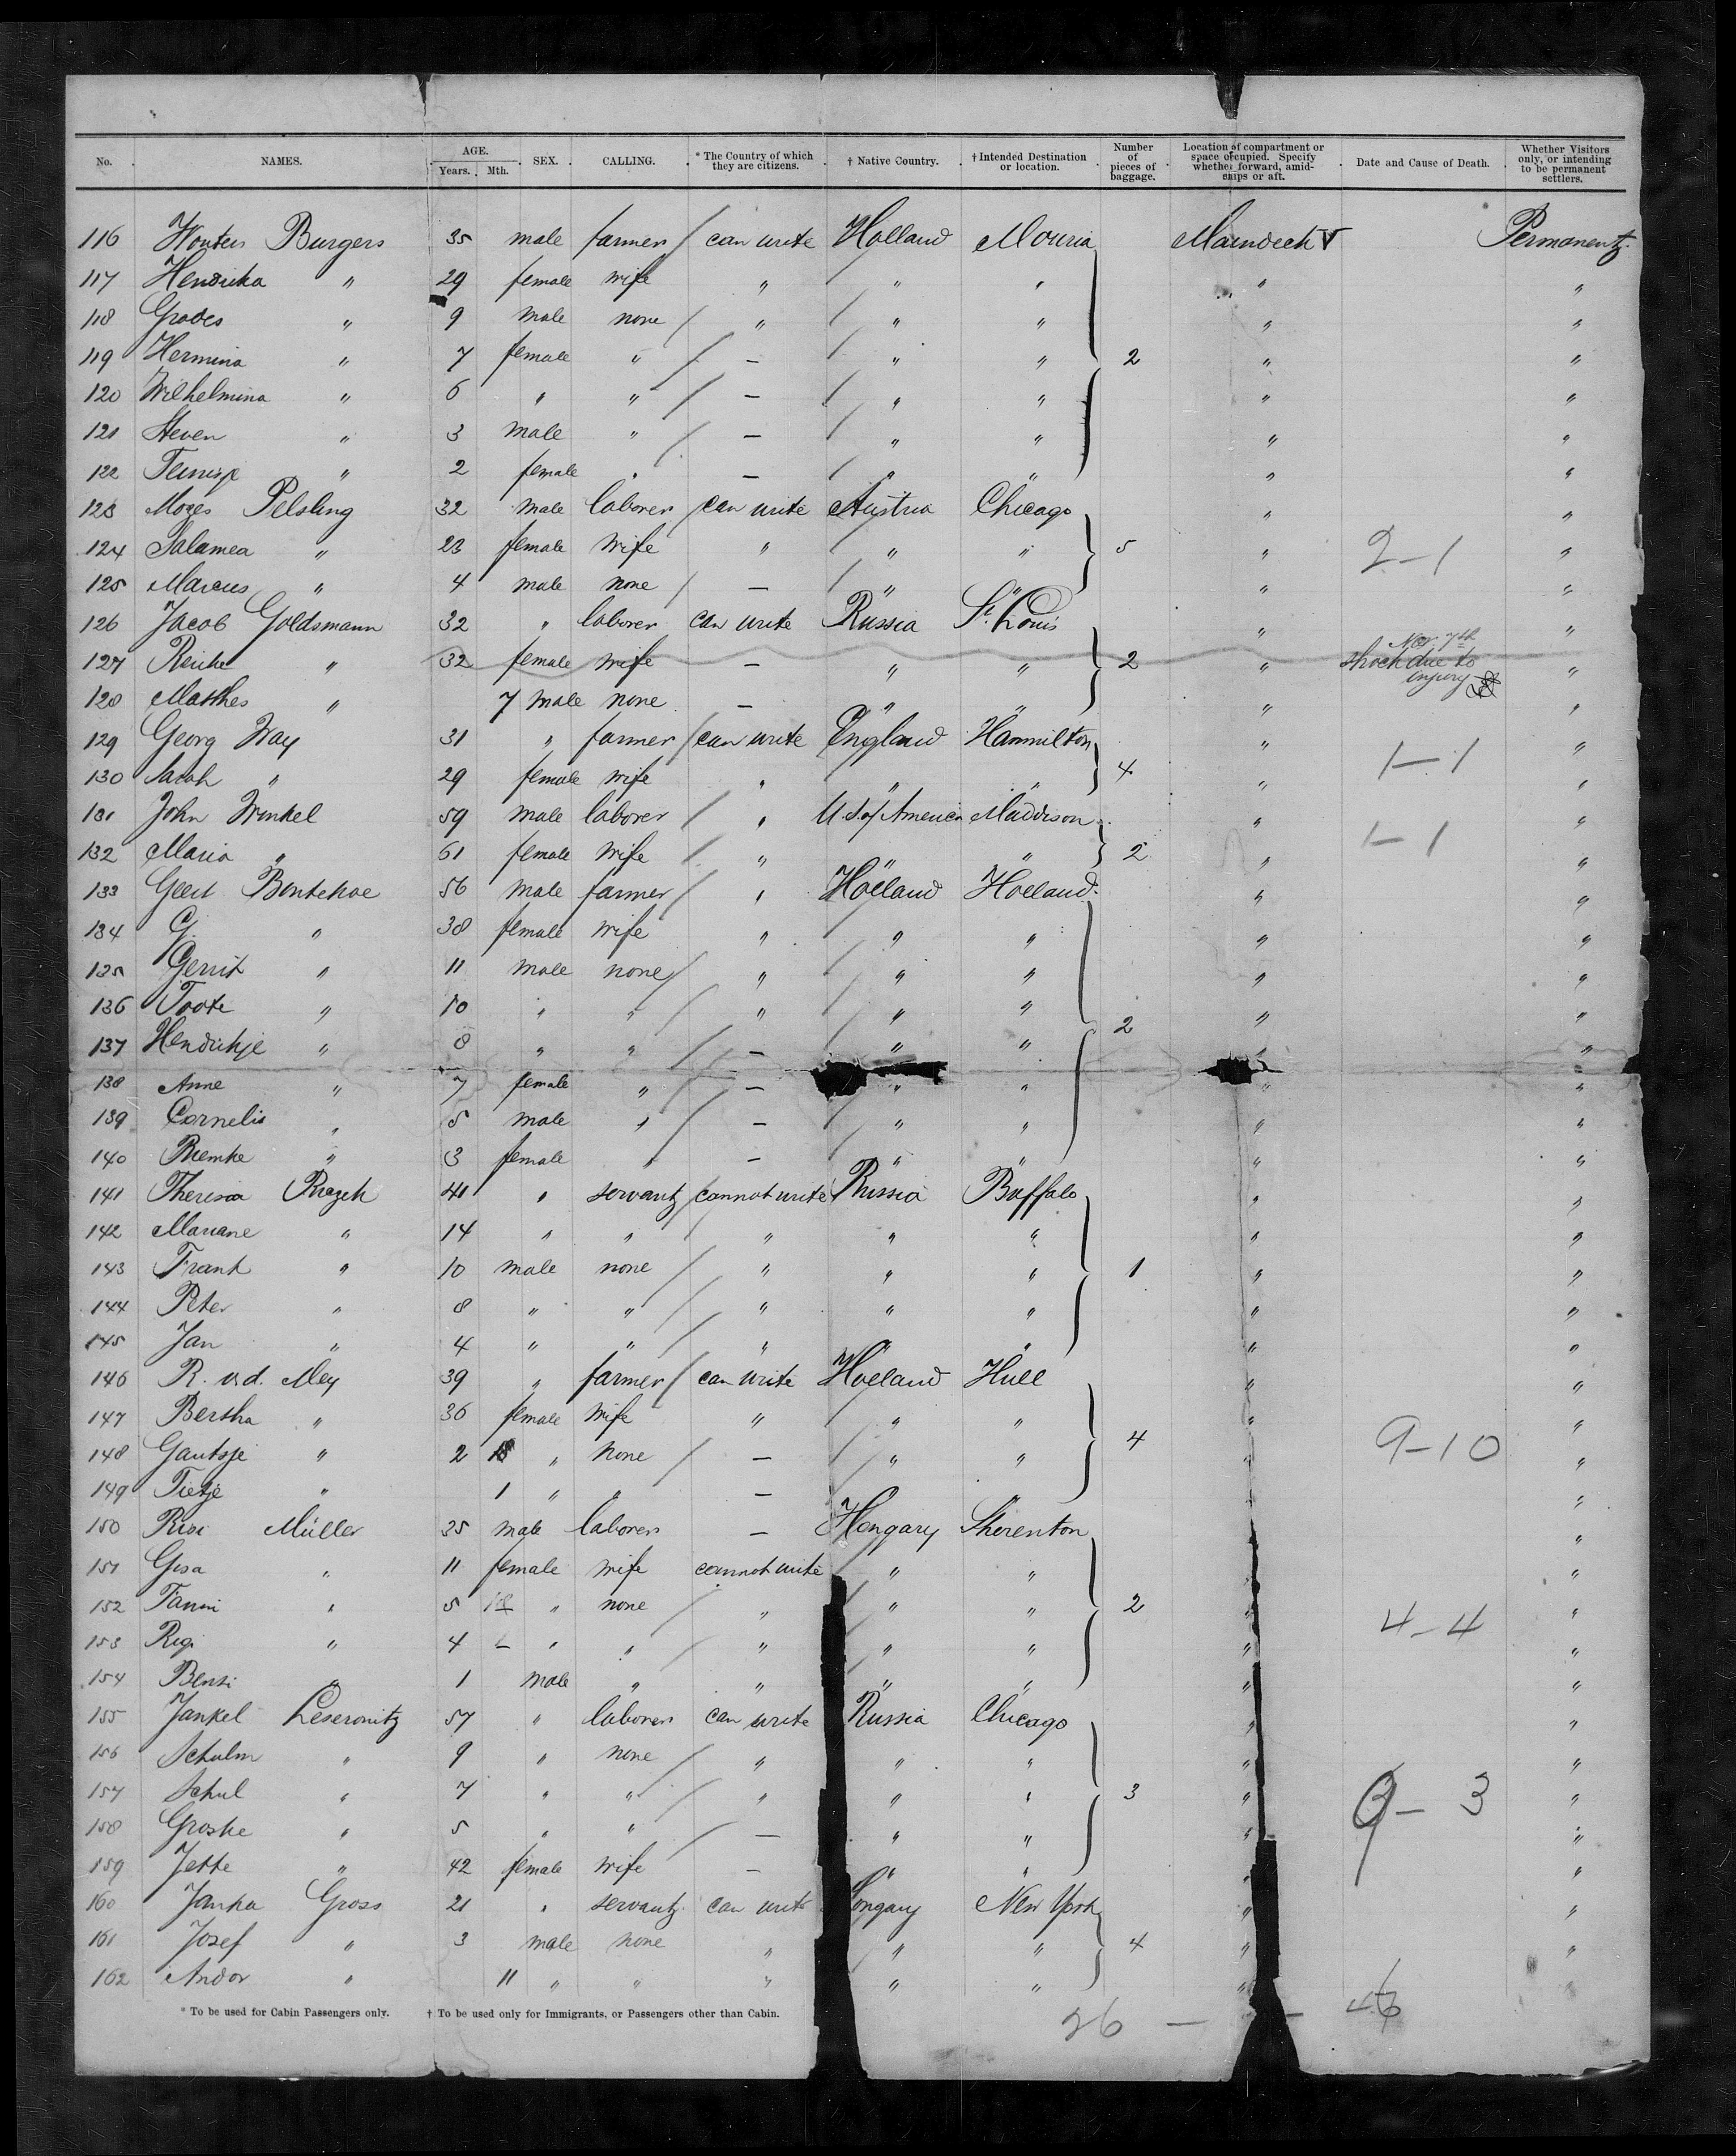 No. NAMES. AGE. Years. Mth. SEX. CALLING. * The Country of which they are citizens. † Native Country. † Intended Destination or location. Number of pieces of baggage. Location of compartment or space occupied. Specify whether forward, amidships or aft. Date and Cause of Death. Whether Visitors only, or intending to be permanent settlers.
116 Wouters Burgers 35 male farmer / can write Holland Mouria Maindeck V Permanent.
117 Hendrika " 29 female wife " " " " "
118 Grades " 9 male none / " / " " " "
119 Hermina " 7 female " / — / " " 2 " "
120 Wilhelmina " 6 " " / — / " " " "
121 Steven " 3 male " / — / " " " "
122 " 2 female " — / " " " "
123 Mozes Pelsling 32 male laborer / can write Austria Chicago " "
124 Salamea " 23 female wife " " " 5 " 2-1 "
125 Marcus " 4 male none / — / " " " "
126 Jacob Goldsmann 32 " laborer can write Russia St. Louis " "
127 Reicke " 32 female wife — " " 2 " Nov. 7th shock due to injury "
128 Matthes " 7 male none — " " " "
129 Georg Way 31 " farmer / can write England Hammilton " "
130 Sarah " 29 female wife " " " 4 " 1-1 "
131 John Winkel 59 male laborer / " U.S. of America Maddison " "
132 Maria " 61 female wife / " " " 2 " 1-1 "
133 Geert Bontekoe 56 male farmer / " Holland Holland " "
134 G. " 38 female wife " / " " " "
135 Gerrit " 11 male none / " / " " " "
136 Toote " 10 " " / " / " " 2 " "
137 Hendrikje " 8 " " / — / " " " "
138 Anne " 7 female " / — " " " "
139 Cornelis " 5 male " / — / " " " "
140 Riemke " 3 female " — / " " " "
141 Theresia 41 " servant / cannot write Russia Buffalo " "
142 Mariane " 14 " " / " " " " "
143 Frank " 10 male none / " " " 1 " "
144 Peter " 8 " " / " " " " "
145 Jan " 4 " " / " " " " "
146 R. v.d. Mey 39 " farmer / can write Holland Hull " "
147 Bertha " 36 female wife " / " " " "
148 Gautsje " 2 " none / — / " " 4 " 9-10 "
149 Tietje " 1 " " — " " "
150 Müller 35 male laborer — Hongary Sherenton "
151 Gisa " 11 female wife cannot write / " " "
152 Fanni " 5 " none / " / " " 2 " "
153 Regi " 4 - " " / " / " " " 4-4 "
154 Bensi " 1 male " " / " " " "
155 Jankel Leserowitz 57 " laborer can write Russia Chicago " "
156 Schulm " 9 " none / " " " " "
157 Schul " 7 " " / " " " 3 " 9- 3 "
158 Groske " 5 " " / — " " " "
159 Jette " 42 female wife — " " " "
160 Janka Gross 21 " servant can write Hongary New York " "
161 Josef " 3 male none " " " 4 " "
162 Andor " 11 " " " " " " "
* To be used for Cabin Passengers only. † To be used only for Immigrants, or Passengers other than Cabin.
26 — 46